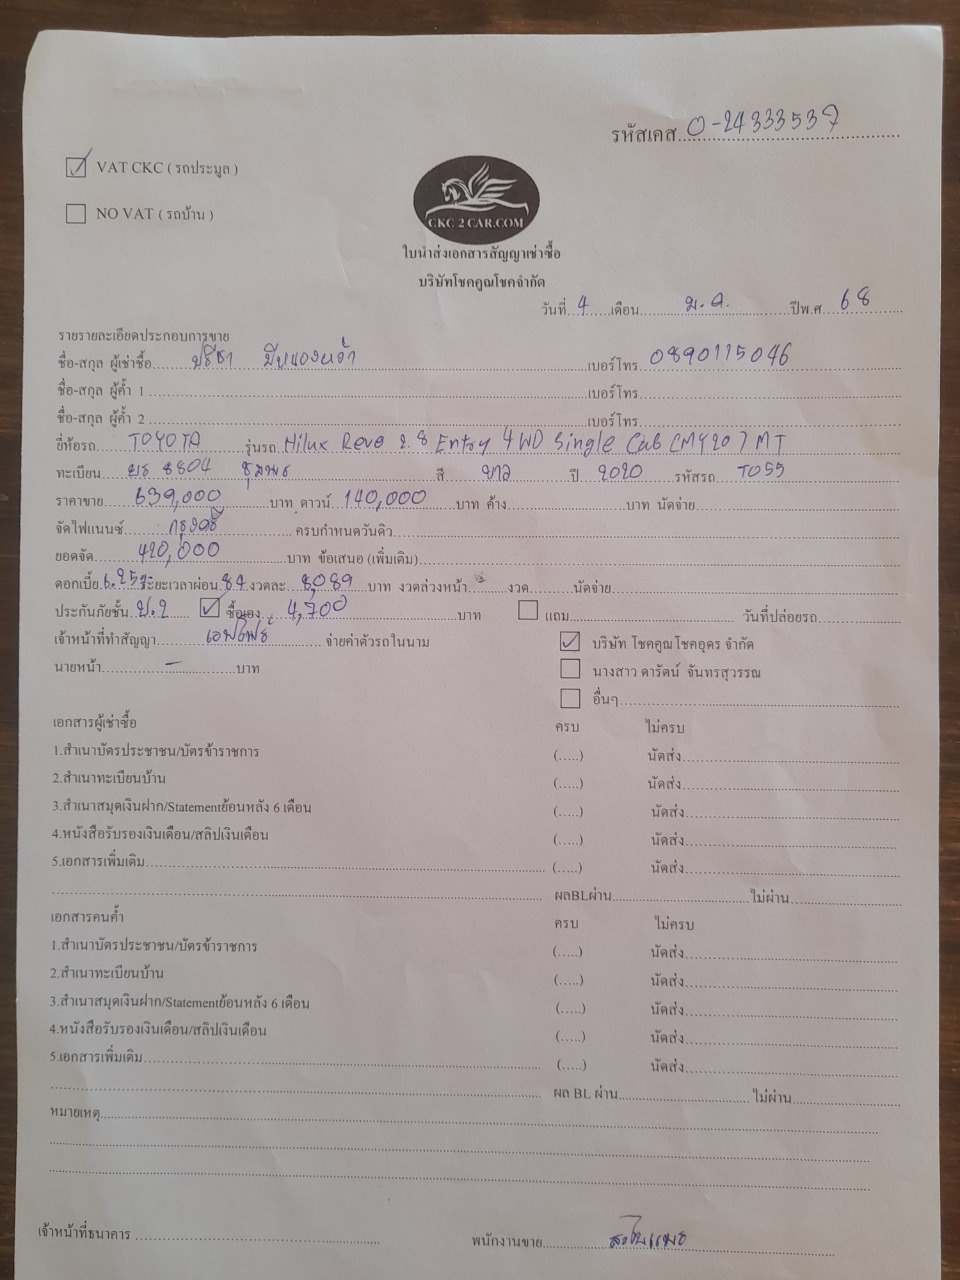 รหัสเคส 0-24333537
VAT CKC ( รถประมูล )
NO VAT ( รถบ้าน )
CKC 2 CAR.COM
ใบนำส่งเอกสารสัญญาเช่าซื้อ
บริษัทโชคคูณโชคจำกัด
วันที่ 4 เดือน ม.ค. ปีพ.ศ. 68
รายรายละเอียดประกอบการขาย
ชื่อ-สกุล ผู้เช่าซื้อ ปรีชา เบอร์โทร 0890115046
ชื่อ-สกุล ผู้ค้ำ 1 เบอร์โทร
ชื่อ-สกุล ผู้ค้ำ 2 เบอร์โทร
ยี่ห้อรถ TOYOTA รุ่นรถ Hilux Revo 2.8 Entry 4WD Single Cab (MY20) MT
ทะเบียน 8804 ชุมพร สี ขาว ปี 2020 รหัสรถ T055
ราคาขาย 639,000 บาท ดาวน์ 140,000 บาท ค้าง บาท นัดจ่าย
จัดไฟแนนซ์ กรุงศรี ครบกำหนดวันดิว
ยอดจัด 420,000 บาท ข้อเสนอ (เพิ่มเติม)
ดอกเบี้ย 6.25% ระยะเวลาผ่อน 84 งวดละ 8,089 บาท งวดล่วงหน้า งวด นัดจ่าย
ประกันภัยชั้น ป.2 ซื้อเอง 4,700 บาท แถม วันที่ปล่อยรถ
เจ้าหน้าที่ทำสัญญา จ่ายค่าตัวรถในนาม บริษัท โชคคูณโชคอุดร จำกัด
นายหน้า - บาท นางสาว ดารัตน์ จันทรสุวรรณ
อื่นๆ
เอกสารผู้เช่าซื้อ ครบ ไม่ครบ
1.สำเนาบัตรประชาชน/บัตรข้าราชการ (.....) นัดส่ง
2.สำเนาทะเบียนบ้าน (.....) นัดส่ง
3.สำเนาสมุดเงินฝาก/Statementย้อนหลัง 6 เดือน (.....) นัดส่ง
4.หนังสือรับรองเงินเดือน/สลิปเงินเดือน (.....) นัดส่ง
5.เอกสารเพิ่มเติม (.....) นัดส่ง
ผลBLผ่าน ไม่ผ่าน
เอกสารคนค้ำ ครบ ไม่ครบ
1.สำเนาบัตรประชาชน/บัตรข้าราชการ (.....) นัดส่ง
2.สำเนาทะเบียนบ้าน (.....) นัดส่ง
3.สำเนาสมุดเงินฝาก/Statementย้อนหลัง 6 เดือน (.....) นัดส่ง
4.หนังสือรับรองเงินเดือน/สลิปเงินเดือน (.....) นัดส่ง
5.เอกสารเพิ่มเติม (.....) นัดส่ง
ผล BL ผ่าน ไม่ผ่าน
หมายเหตุ
เจ้าหน้าที่ธนาคาร พนักงานขาย